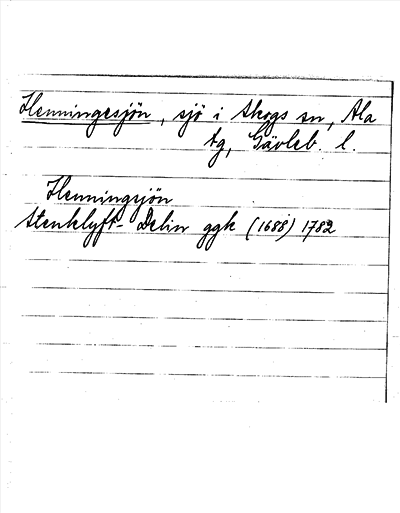 Henningesjön, sjö i Skogs sn, Ala
tg, Gävleb. l.
Henningsjön
Stenklyft- Delin ggk (1688) 1782